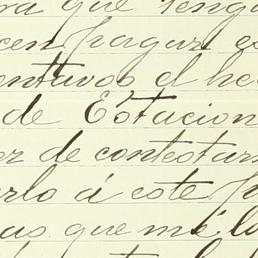 ra que tenga
cen pagar
entavos el he
de Estacion
ez de contestar
erlo á este
as que me lo